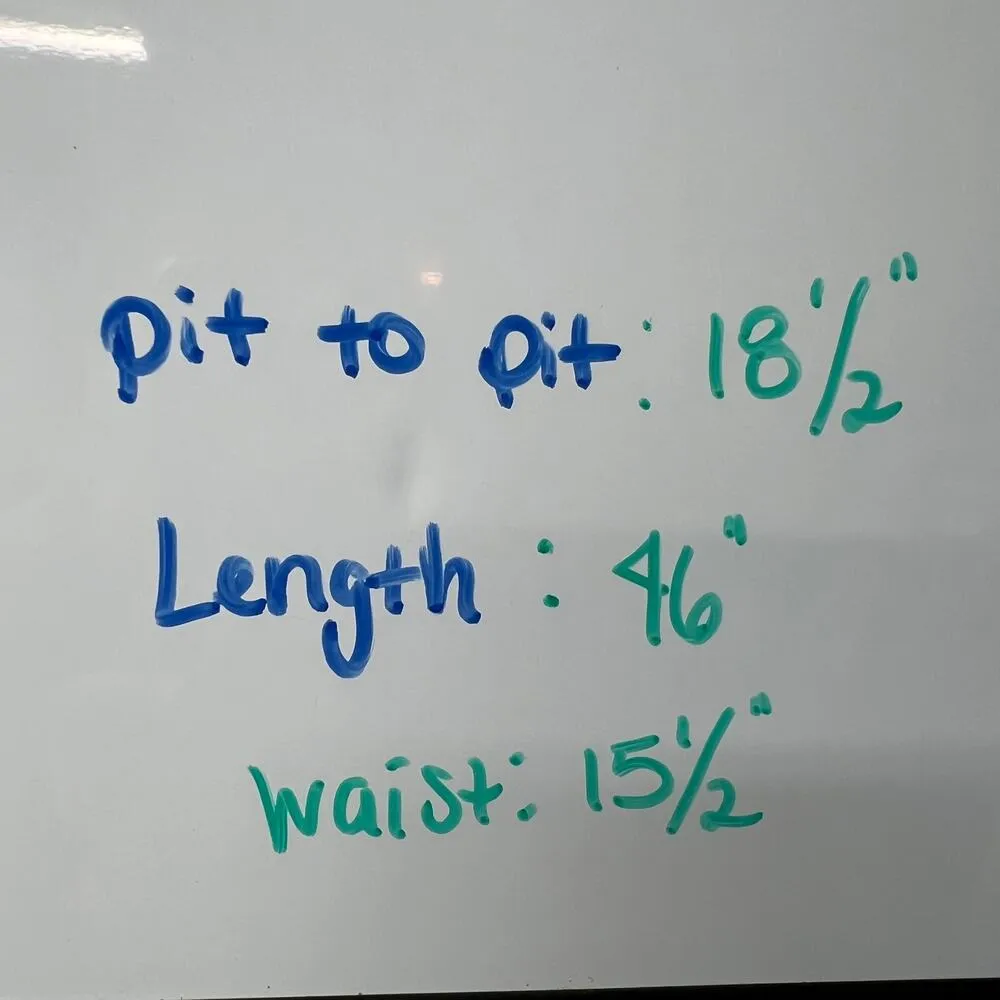 pit to pit: 18 1/2"
Length: 46"
waist: 15 1/2"